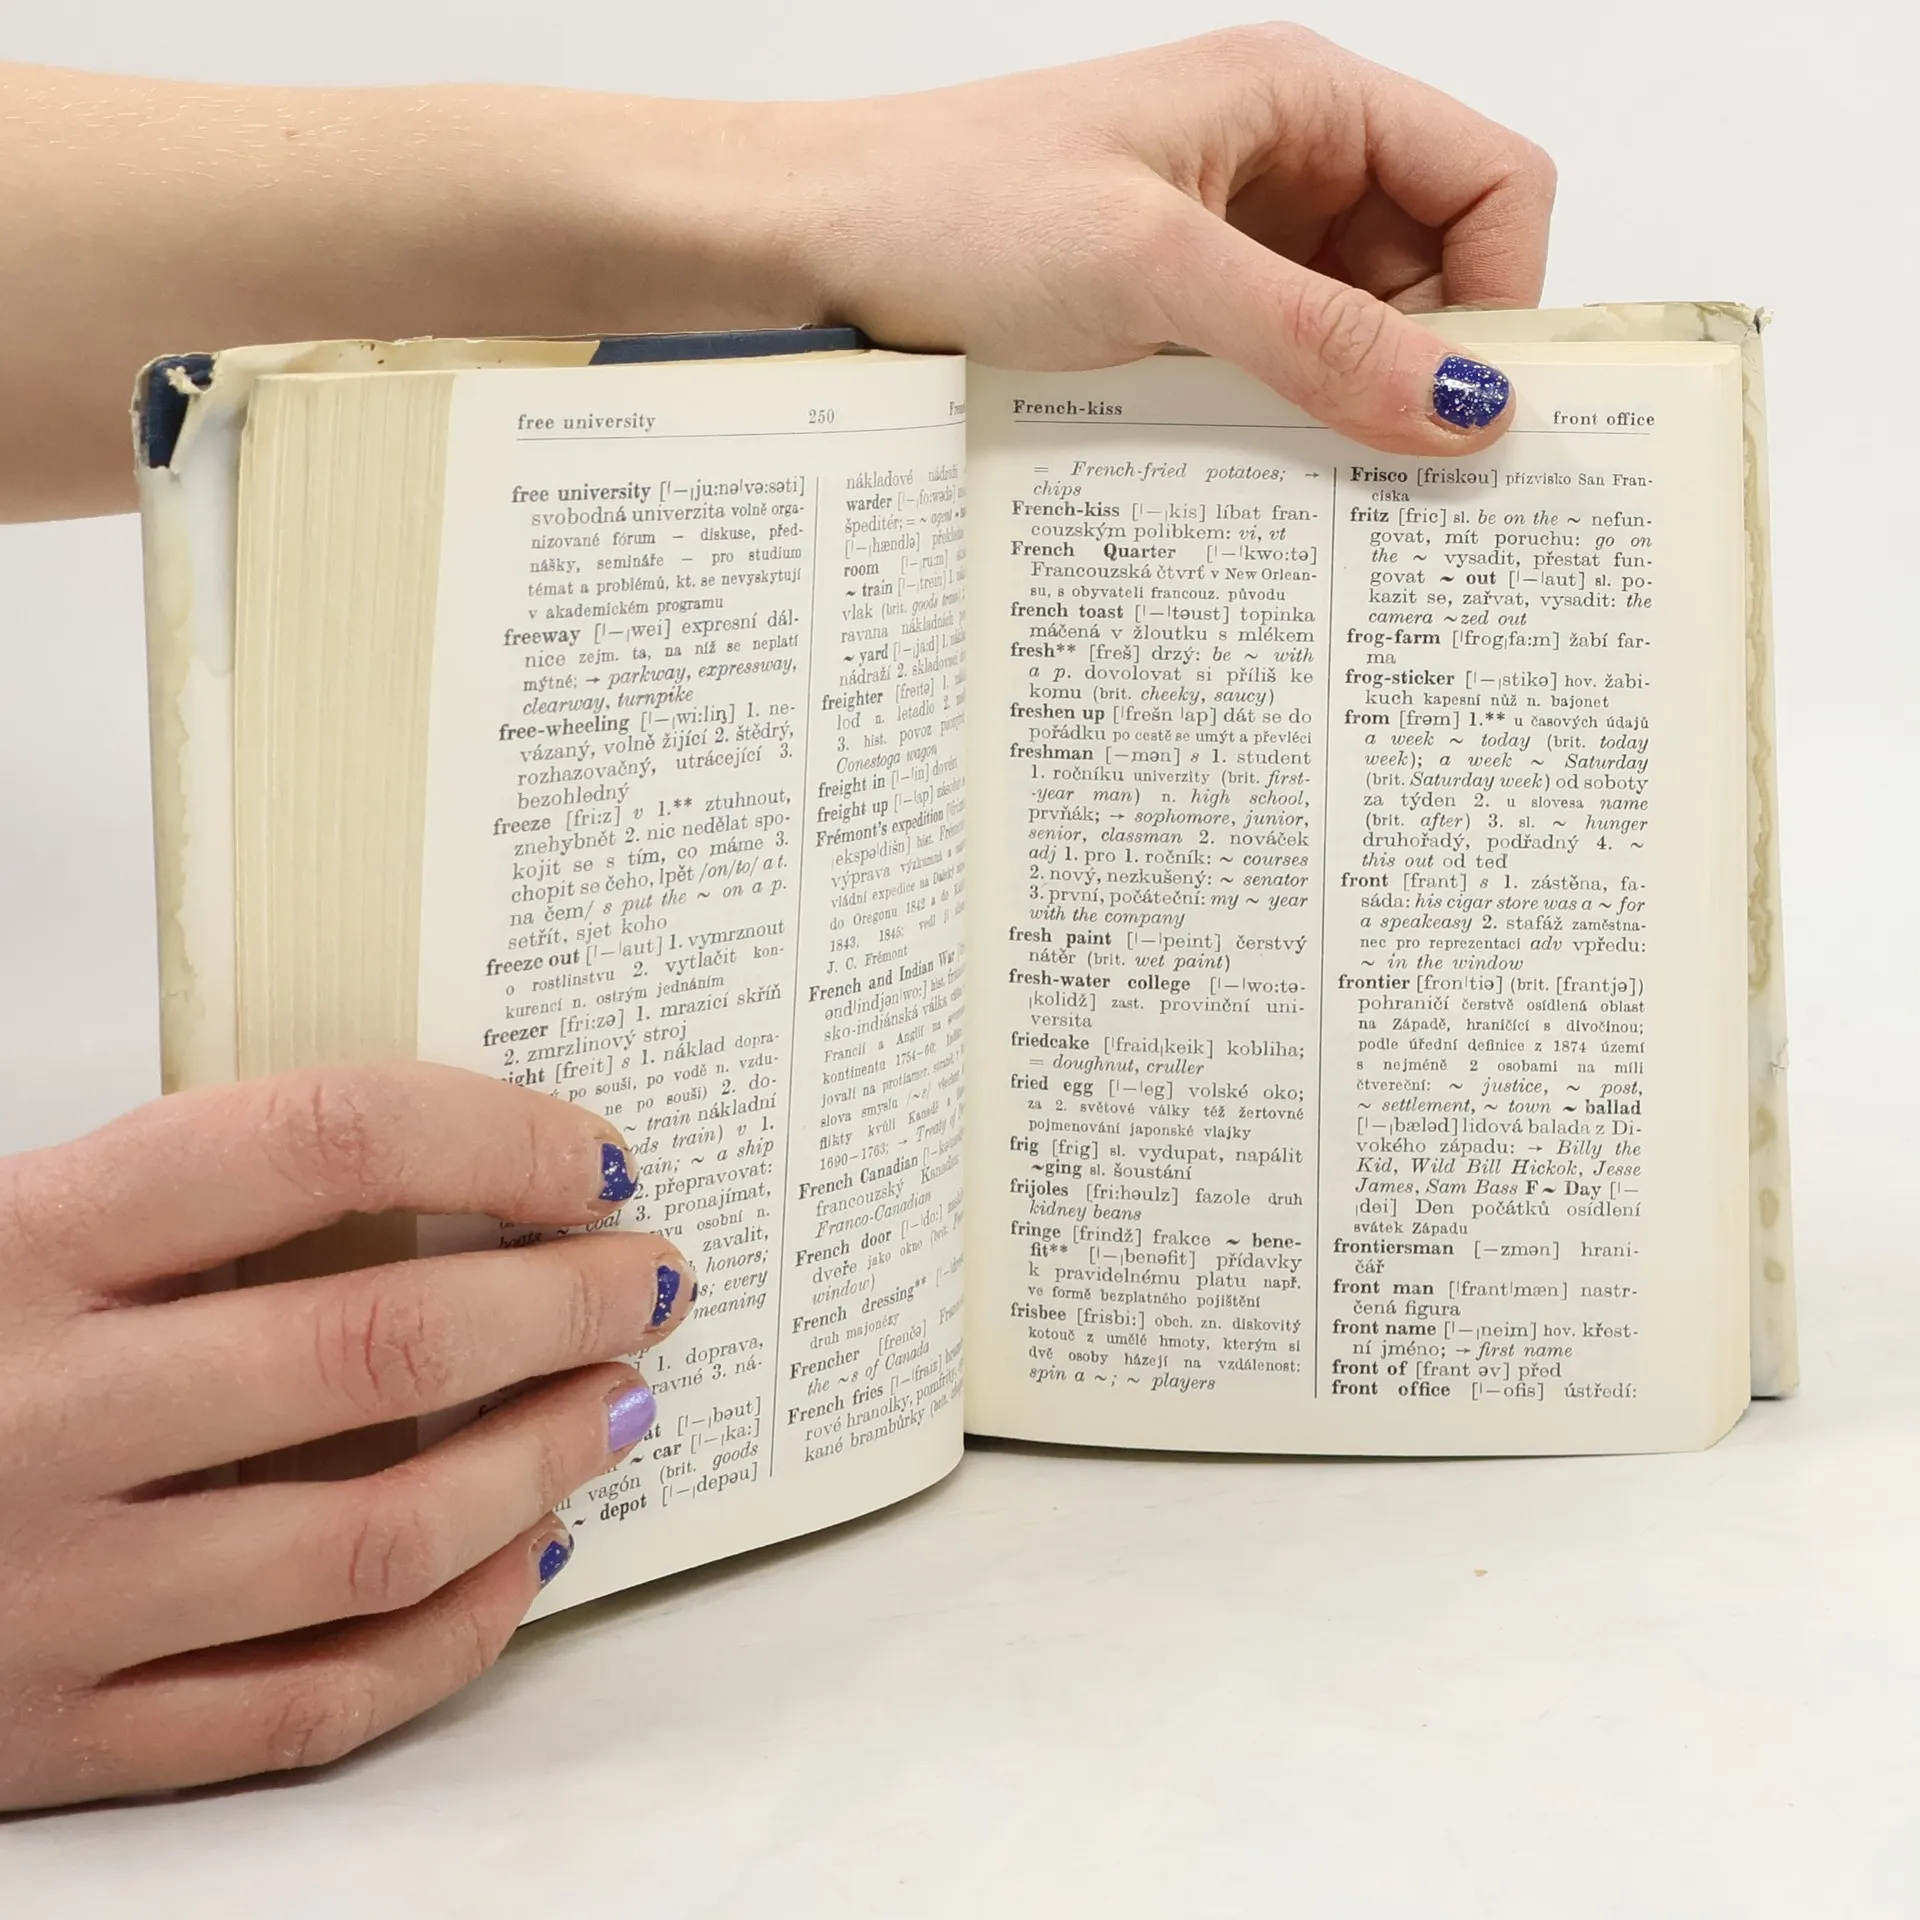 free university 250
free university [ˈ–ˌju:nəˈvə:səti]
svobodná univerzita volně orga-
nizované fórum – diskuse, před-
nášky, semináře – pro studium
témat a problémů, kt. se nevyskytují
v akademickém programu
freeway [ˈ–ˌwei] expresní dál-
nice zejm. ta, na níž se neplatí
mýtné; → parkway, expressway,
clearway, turnpike
free-wheeling [ˈ–ˌwi:liŋ] 1. ne-
vázaný, volně žijící 2. štědrý,
rozhazovačný, utrácející 3.
bezohledný
freeze [fri:z] v 1.** ztuhnout,
znehybnět 2. nic nedělat spo-
kojit se s tím, co máme 3.
chopit se čeho, lpět /on/to/ a t.
na čem/ s put the ~ on a p.
setřít, sjet koho
freeze out [ˈ–ˈaut] 1. vymrznout
o rostlinstvu 2. vytlačit kon-
kurencí n. ostrým jednáním
freezer [fri:zə] 1. mrazicí skříň
2. zmrzlinový stroj
[freit] s 1. náklad dopra-
po souši, po vodě n. vzdu-
ne po souši) 2. do-
~ train nákladní
train) v 1.
~ a ship
2. přepravovat:
~ coal 3. pronajímat,
osobní n.
zavalit,
honors;
every
meaning
1. doprava,
3. ná-
[ˈ–ˌbəut]
~ car [ˈ–ˌka:]
vagón (brit. goods
~ depot [ˈ–ˌdepəu]
nákladové nádraží
warder [ˈ–ˌfo:wədə]
špeditér; = ~ agent
[ˈ–ˌhændlə]
room [ˈ–ˌru:m]
~ train [ˈ–ˌtrein] 1.
vlak (brit. goods train)
ravana nákladních
~ yard [ˈ–ˌja:d] 1.
nádraží 2. skladovací
freighter [freitə] 1.
lod n. letadlo 2.
3. hist. povoz
Conestoga wagon
freight in [ˈ–ˈin]
freight up [ˈ–ˈap]
Frémont's expedition
ˌekspəˈdišn] hist.
výprava výzkumná a
vládní expedice na Daleký
do Oregonu 1842 a do
1843, 1845; vedl ji
J. C. Frémont
French and Indian War
əndˈindjənˈwo:] hist.
sko-indiánská válka
Francií a Anglií na
kontinentu 1754–60;
jovali na
slova smyslu /~s/
flikty kvůli Kanadě
1690–1763; → Treaty of
French Canadian
francouzský Kanaďan
Franco-Canadian
French door [ˈ–do:]
dveře jako okno (brit.
window)
French dressing**
druh majonézy
Frencher [frenčə]
the ~s of Canada
French fries [ˈ–ˈfraiz]
rové hranolky, pomfrity,
kané brambůrky (brit.
French-kiss front office
= French-fried potatoes; →
chips
French-kiss [ˈ–ˌkis] líbat fran-
couzským polibkem: vi, vt
French Quarter [ˈ–ˈkwo:tə]
Francouzská čtvrť v New Orlean-
su, s obyvateli francouz. původu
french toast [ˈ–ˈtəust] topinka
máčená v žloutku s mlékem
fresh** [freš] drzý: be ~ with
a p. dovolovat si příliš ke
komu (brit. cheeky, saucy)
freshen up [ˈfrešn ˈap] dát se do
pořádku po cestě se umýt a převléci
freshman [–mən] s 1. student
1. ročníku univerzity (brit. first-
-year man) n. high school,
prvňák; → sophomore, junior,
senior, classman 2. nováček
adj 1. pro 1. ročník: ~ courses
2. nový, nezkušený: ~ senator
3. první, počáteční: my ~ year
with the company
fresh paint [ˈ–ˈpeint] čerstvý
nátěr (brit. wet paint)
fresh-water college [ˈ–wo:tə-
ˌkolidž] zast. provinční uni-
versita
friedcake [ˈfraidˌkeik] kobliha;
= doughnut, cruller
fried egg [ˈ–ˈeg] volské oko;
za 2. světové války též žertovné
pojmenování japonské vlajky
frig [frig] sl. vydupat, napálit
~ging sl. šoustání
frijoles [fri:həulz] fazole druh
kidney beans
fringe [frindž] frakce ~ bene-
fit** [ˈ–ˌbenəfit] přídavky
k pravidelnému platu např.
ve formě bezplatného pojištění
frisbee [frisbi:] obch. zn. diskovitý
kotouč z umělé hmoty, kterým si
dvě osoby házejí na vzdálenost:
spin a ~; ~ players
Frisco [friskəu] přízvisko San Fran-
ciska
fritz [fric] sl. be on the ~ nefun-
govat, mít poruchu: go on
the ~ vysadit, přestat fun-
govat ~ out [ˈ–ˈaut] sl. po-
kazit se, zařvat, vysadit: the
camera ~zed out
frog-farm [ˈfrogˌfa:m] žabí far-
ma
frog-sticker [ˈ–ˌstikə] hov. žabi-
kuch kapesní nůž n. bajonet
from [frəm] 1.** u časových údajů
a week ~ today (brit. today
week); a week ~ Saturday
(brit. Saturday week) od soboty
za týden 2. u slovesa name
(brit. after) 3. sl. ~ hunger
druhořadý, podřadný 4. ~
this out od teď
front [frant] s 1. zástěna, fa-
sáda: his cigar store was a ~ for
a speakeasy 2. stafáž zaměstna-
nec pro reprezentaci adv vpředu:
~ in the window
frontier [fronˈtiə] (brit. [frantjə])
pohraničí čerstvě osídlená oblast
na Západě, hraničící s divočinou;
podle úřední definice z 1874 území
s nejméně 2 osobami na míli
čtvereční: ~ justice, ~ post,
~ settlement, ~ town ~ ballad
[ˈ–ˌbæləd] lidová balada z Di-
vokého západu: → Billy the
Kid, Wild Bill Hickok, Jesse
James, Sam Bass F~ Day [ˈ–
ˌdei] Den počátků osídlení
svátek Západu
frontiersman [–zmən] hrani-
čář
front man [ˈfrantˈmæn] nastr-
čená figura
front name [ˈ–ˌneim] hov. křest-
ní jméno; → first name
front of [frant əv] před
front office [ˈ–ofis] ústředí: